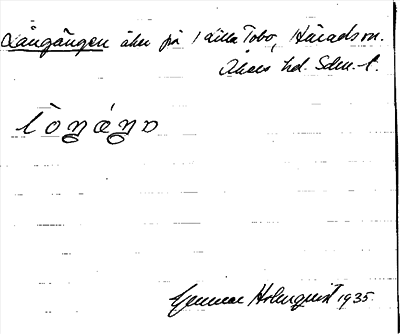 Långången åker på 1 Lilla Tobo, Häradsm.
Åkers hd. Sdm.-l.
lòŋáŋo
Gunnar Holmquist 1935.